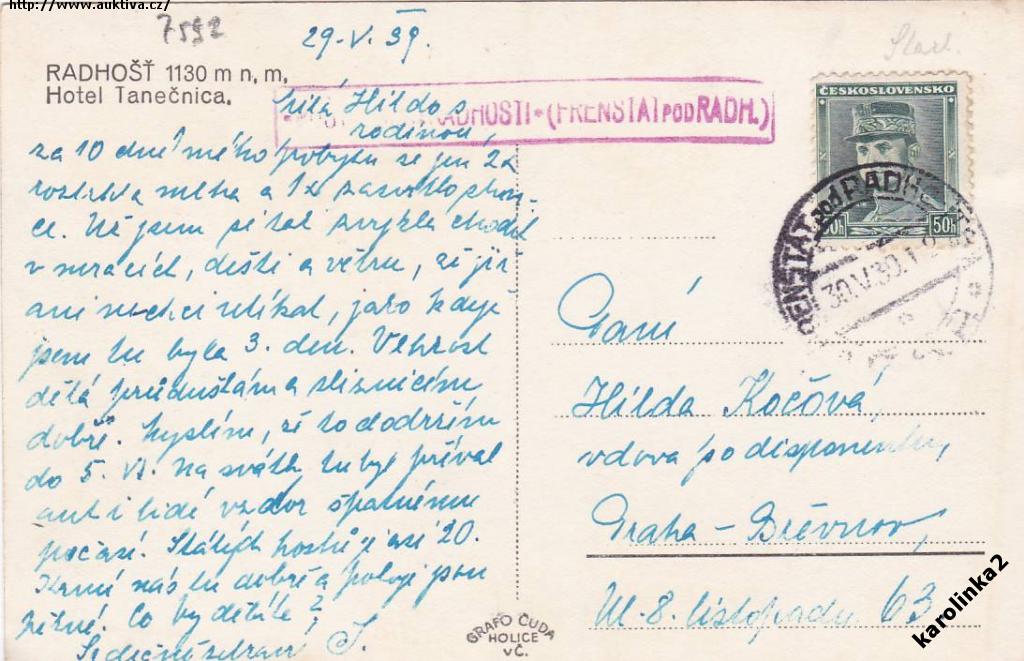 http://www.auktiva.cz/
7592
29.V.39.
RADHOŠŤ 1130 m n. m.
Hotel Tanečnica.
RADHOŠTI * (FRENŠTÁT POD RADH.)
Milá Hildo s
rodinou,
za 10 dnů mého pobytu se jen 2x
roztrhla mlha a 1x zasvitlo slun-
ce. Už jsem si tak zvykla chodit
v mracích, dešti a větru, že ji
ani nechci utíkat, jako když
jsem tu byla 3. den. Vlhkost
dělá průduškám a sliznicím
dobře. Myslím, že to dodržím
do 5. VI. Na svátky tu byl příval
aut i lidí vzdor špatnému
počasí. Stálých hostů je asi 20.
Krmí nás tu dobře a pokoje jsou
Co vy děláte?
Srdečně zdraví J.
ČESKOSLOVENSKO
50h
50h
FRENŠTÁT pod RADH
30.V.39
Paní
Hilda Kočová,
vdova po disponentu,
Praha - Břevnov,
Ul. 8. listopadu 63
GRAFO ČUDA
HOLICE
VČ.
karolinka2